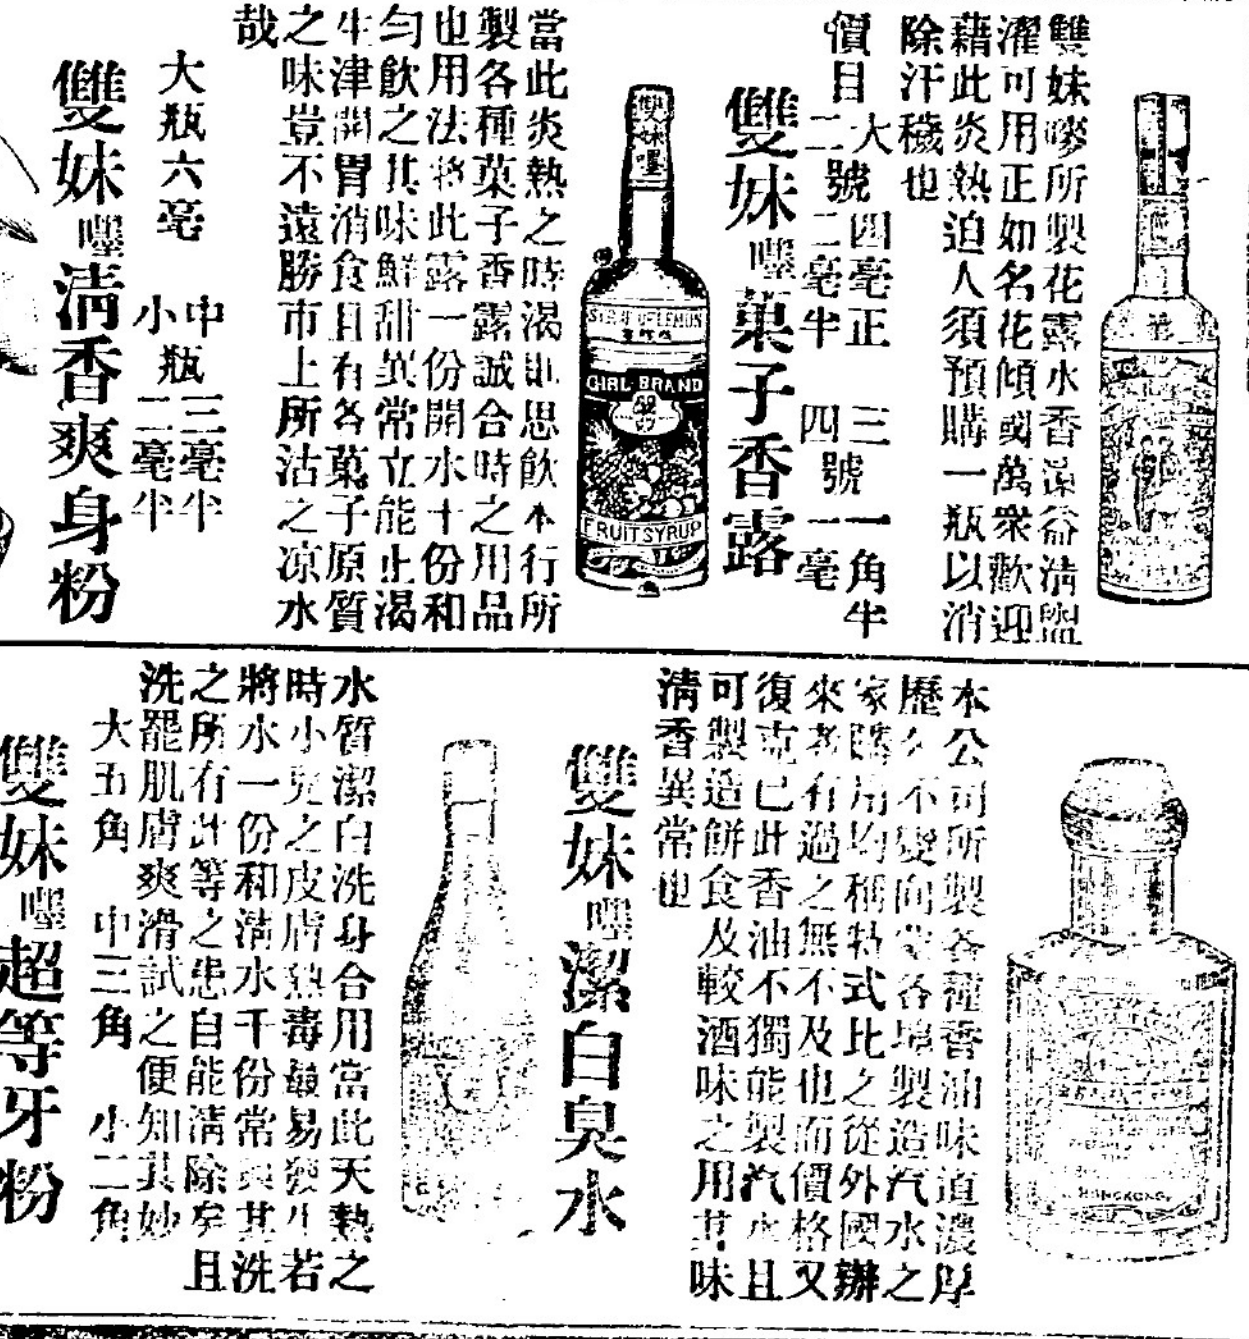 雙妹嘜所製花露水香遠益清盥
濯可用正如名花傾國萬衆歡迎
藉此炎熱迫人須預購一瓶以消
除汗穢也
價目
大號四毫正
二號二毫半
三號一角半
四號一毫
雙妹嘜菓子香露
雙妹嘜
GIRL BRAND
FRUIT SYRUP
當此炎熱之時渴則思飲本行所
製各種菓子香露誠合時之用品
也用法將此露一份開水十份和
勻飲之其味鮮甜異常立能止渴
生津開胃消食且有各菓子原質
之味豈不遠勝市上所沽之凉水
哉
大瓶六毫
中瓶三毫半
小瓶二毫半
雙妹嘜清香爽身粉
本公司所製各種香油味道濃厚
歷久不變向蒙各埠製造汽水之
家購用均稱特式比之從外國辦
來者有過之無不及也而價格又
復克己此香油不獨能製汽水且
可製造餅食及較酒味之用其味
清香異常也
HONGKONG
雙妹嘜潔白臭水
水質潔白洗身合用當此天熱之
時小兒之皮膚熱毒最易發生若
將水一份和清水千份常與其洗
之所有此等之患自能清除矣且
洗罷肌膚爽滑試之便知其妙
大五角 中三角 小二角
雙妹嘜超等牙粉